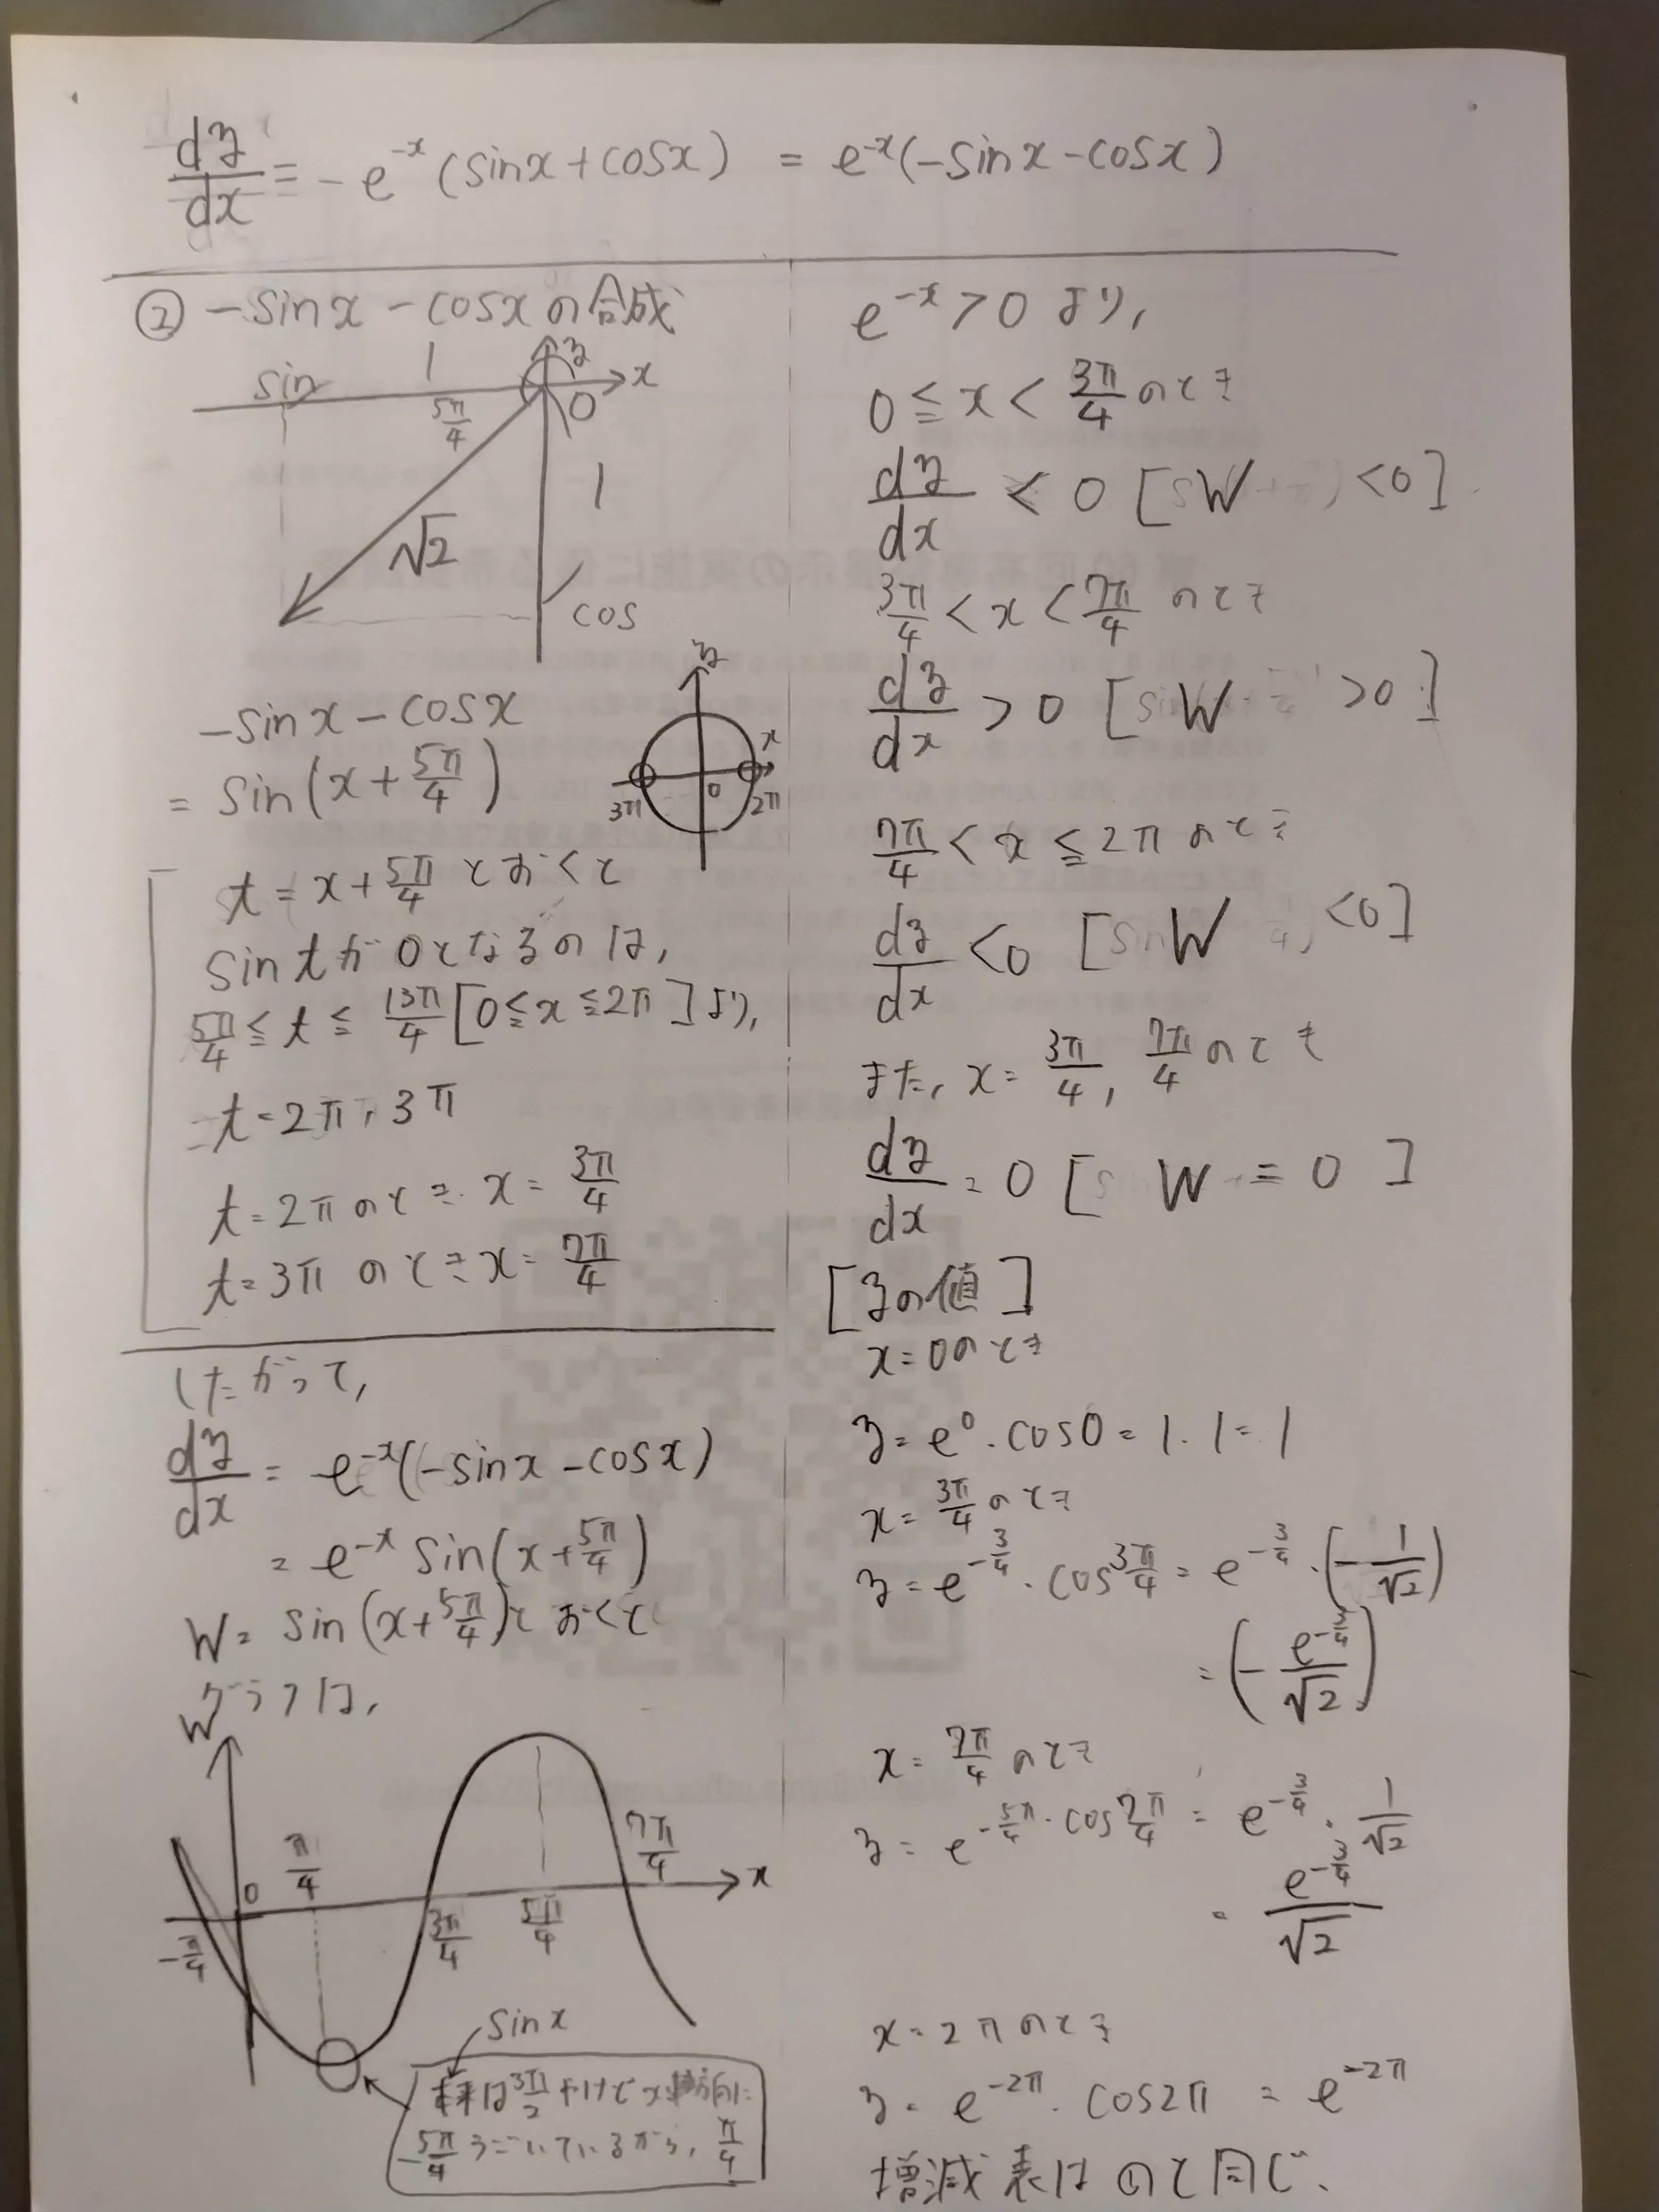 dy/dx = -e^{-x}(sinx+cosx) = e^{-x}(-sinx-cosx)
② -sinx-cosxの合成
sin 1 y x
5π/4 0
√2 1
cos
-sinx-cosx
= sin(x+5π/4)
y x
3π 0 2π
t=x+5π/4とおくと
sintが0となるのは,
5π/4≦t≦13π/4[0≦x≦2π]より,
t=2π, 3π
t=2πのとき x=3π/4
t=3πのとき x=7π/4
したがって,
dy/dx = e^{-x}(-sinx-cosx)
= e^{-x}sin(x+5π/4)
W=sin(x+5π/4)とおくと
グラフは,
W
π/4 7π/4
0 x
-π/4 3π/4 5π/4
sinx
は3π/2 だけど x軸方向に
-5π/4 うごいているから, π/4
e^{-x}>0より,
0≦x<3π/4のとき
dy/dx<0 [W<0]
3π/4<x<7π/4のとき
dy/dx>0 [W>0]
7π/4<x≦2πのとき
dy/dx<0 [W<0]
また, x=3π/4, 7π/4のとき
dy/dx=0 [W=0]
[yの値]
x=0のとき
y=e^0・cos0=1・1=1
x=3π/4のとき
y=e^{-3/4}・cos3π/4=e^{-3/4}・(-1/√2)
=(-e^{-3/4}/√2)
x=7π/4のとき
y=e^{-5π/4}・cos7π/4=e^{-3/4}・1/√2
=e^{-3/4}/√2
x=2πのとき
y=e^{-2π}・cos2π=e^{-2π}
増減表は①のと同じ.